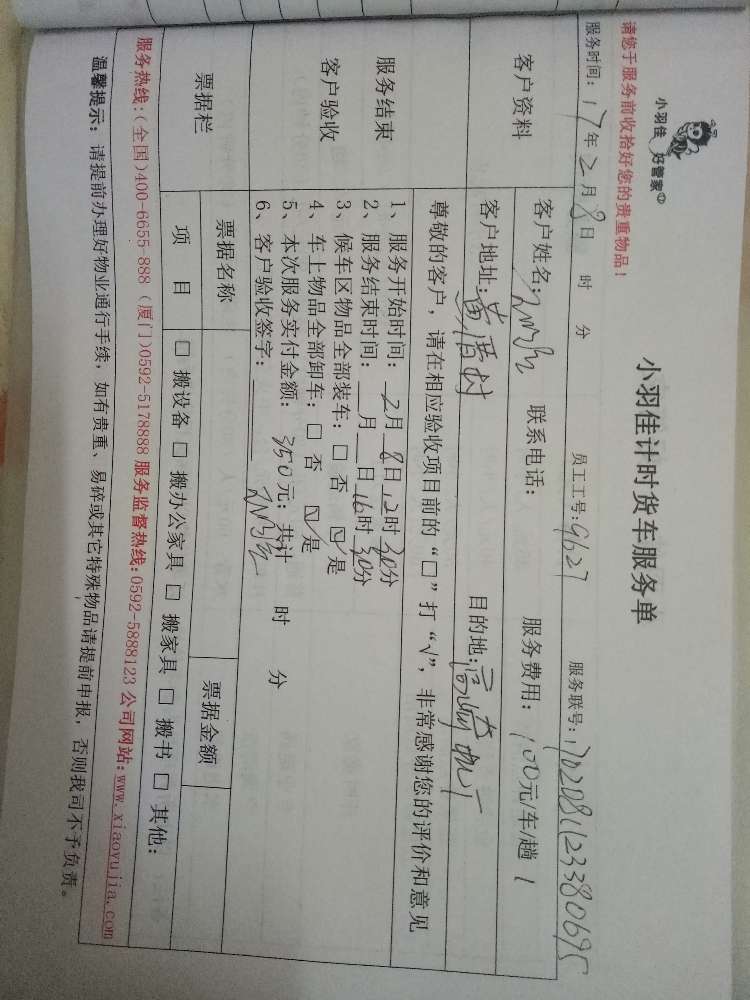 小羽佳 好管家
小羽佳计时货车服务单
请您于服务前收拾好您的贵重物品！
服务时间：17年2月8日 时 分 员工工号：9627 服务联号：1702081123380695
客户资料
客户姓名： 联系电话： 服务费用：100元/车/趟 1
客户地址：黄厝村 目的地：高崎
服务结束
客户验收
尊敬的客户，请在相应验收项目前的“□”打“√”，非常感谢您的评价和意见
1、服务开始时间：2月8日12时30分
2、服务结束时间： 月 日16时30分
3、候车区物品全部装车：□ 否 ☑ 是
4、车上物品全部卸车：□ 否 ☑ 是
5、本次服务实付金额：350元；共计 时 分
6、客户验收签字：
票据栏
票据名称 票据金额
项 目 □ 搬设备 □ 搬办公家具 □ 搬家具 □ 搬书 □ 其他：
服务热线：(全国)400-6655-888 (厦门)0592-5178888 服务监督热线：0592-5888123 公司网站：www.xiaoyujia.com
温馨提示：请提前办理好物业通行手续，如有贵重、易碎或其它特殊物品请提前申报，否则我司不予负责。